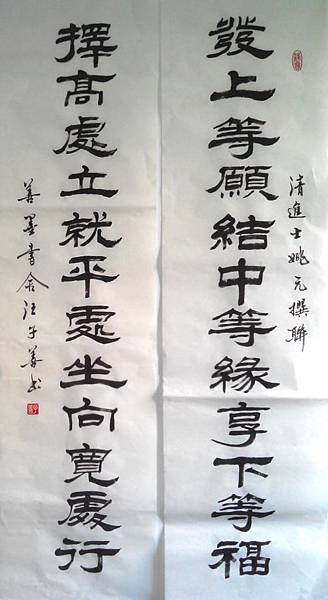 清進士姚元撰聯
發上等願結中等緣享下等福
擇高處立就平處坐向寬處行
善墨書舍汪